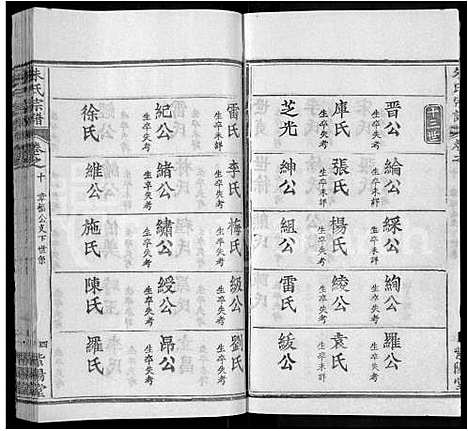 十三世
晋公
生卒失考
庫氏
生卒未詳
芝光
綸公
生卒未詳
張氏
生卒失考
紳公
綵公
生卒失考
楊氏
生卒失考
組公
絢公
生卒未詳
綾公
生卒失考
雷氏
羅公
袁氏
生卒失考
紱公
雷氏
生卒未詳
紀公
生卒失考
徐氏
李氏
生卒失考
緒公
生卒失考
維公
梅氏
生卒失考
繡公
生卒失考
施氏
級公
生卒失考
綬公
生卒失考
陳氏
劉氏
生卒失考
昂公
生卒失考
羅氏
朱氏宗譜
卷之十
公支下世系
四
紫陽堂